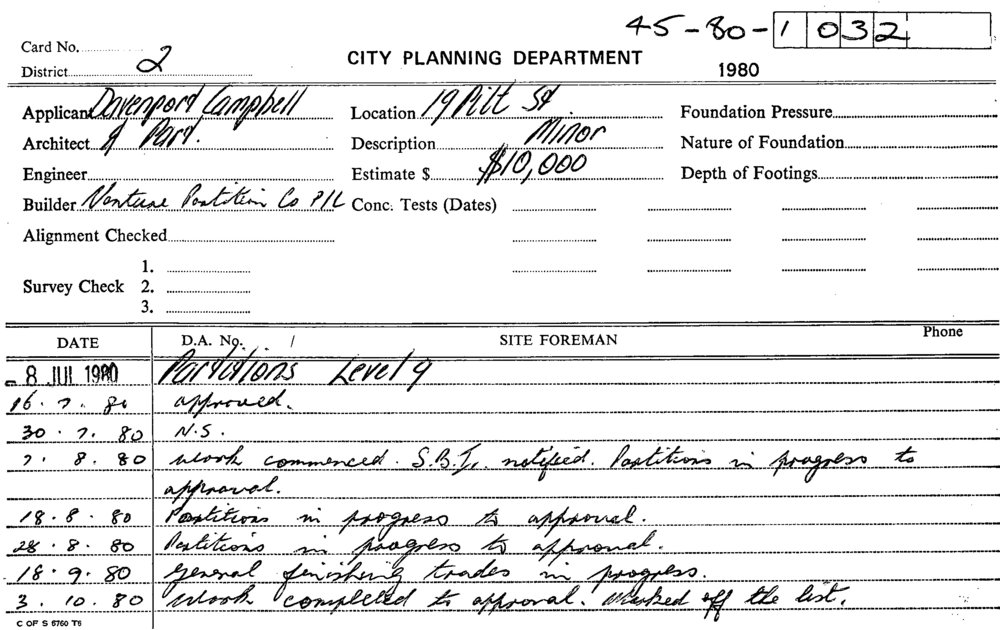 45-80-1 032
Card No.
District 2
CITY PLANNING DEPARTMENT
1980
Applicant Davenport Campbell
Location 19 Pitt St.
Foundation Pressure
Architect & Part.
Description Minor
Nature of Foundation
Engineer
Estimate $ $10,000
Depth of Footings
Builder Venture Partition Co P/L
Conc. Tests (Dates)
Alignment Checked
1.
Survey Check 2.
3.
DATE D.A. No. / SITE FOREMAN Phone
8 JUL 1980 Partitions Level 9
16.7.80 approved.
30.7.80 N.S.
7.8.80 Work commenced. S.B.I. notified. Partitions in progress to
approval.
18.8.80 Partitions in progress to approval.
28.8.80 Partitions in progress to approval.
18.9.80 General finishing trades in progress.
3.10.80 Work completed to approval. Marked off the list.
C OF S 6760 T6